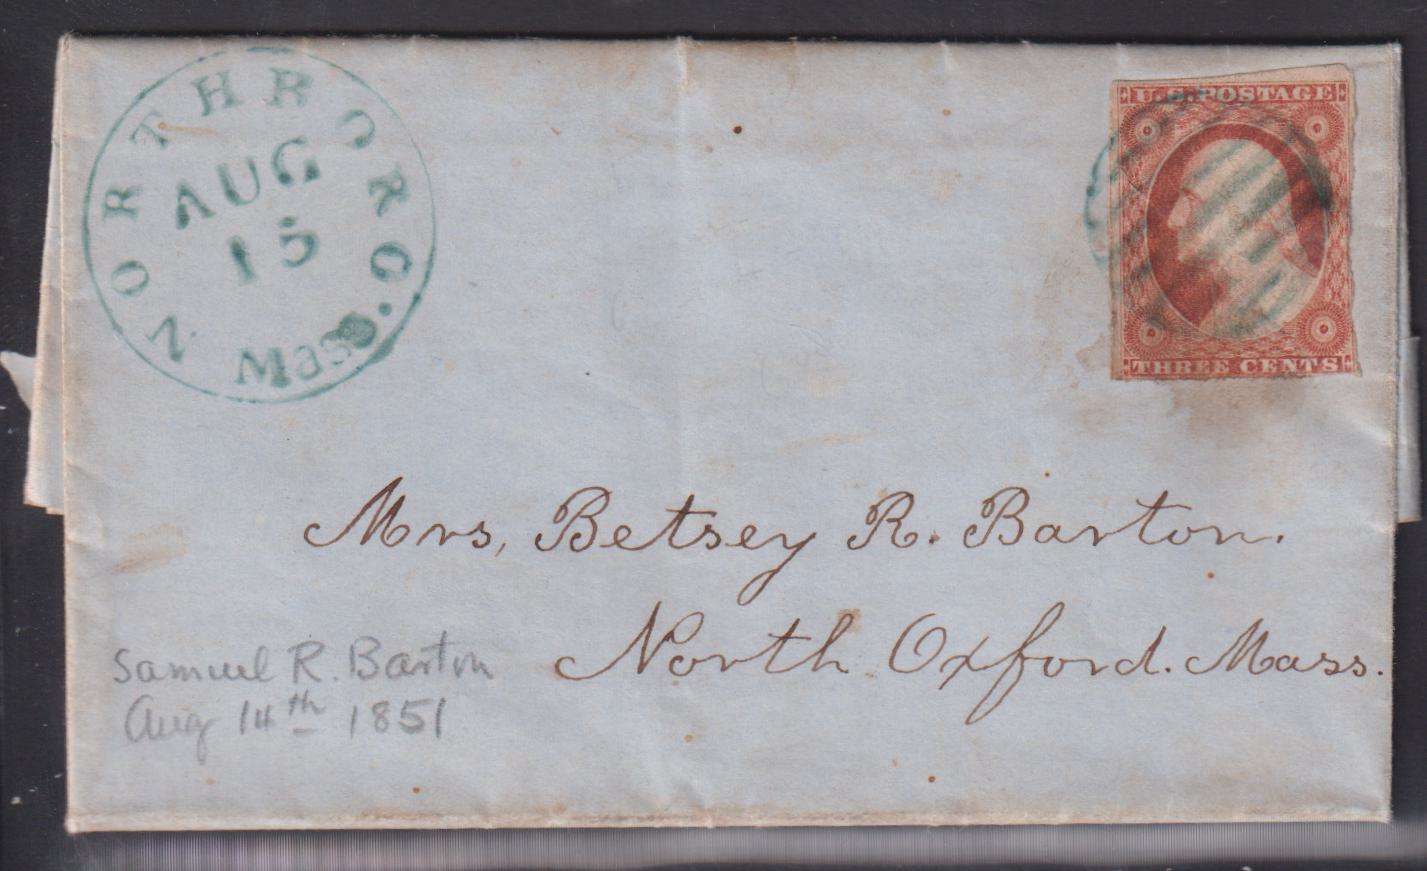 NORTHBORO.
AUG
15
Mass
U.S. POSTAGE
THREE CENTS
Mrs, Betsey R. Barton.
North Oxford. Mass.
Samuel R. Barton
Aug 14th 1851